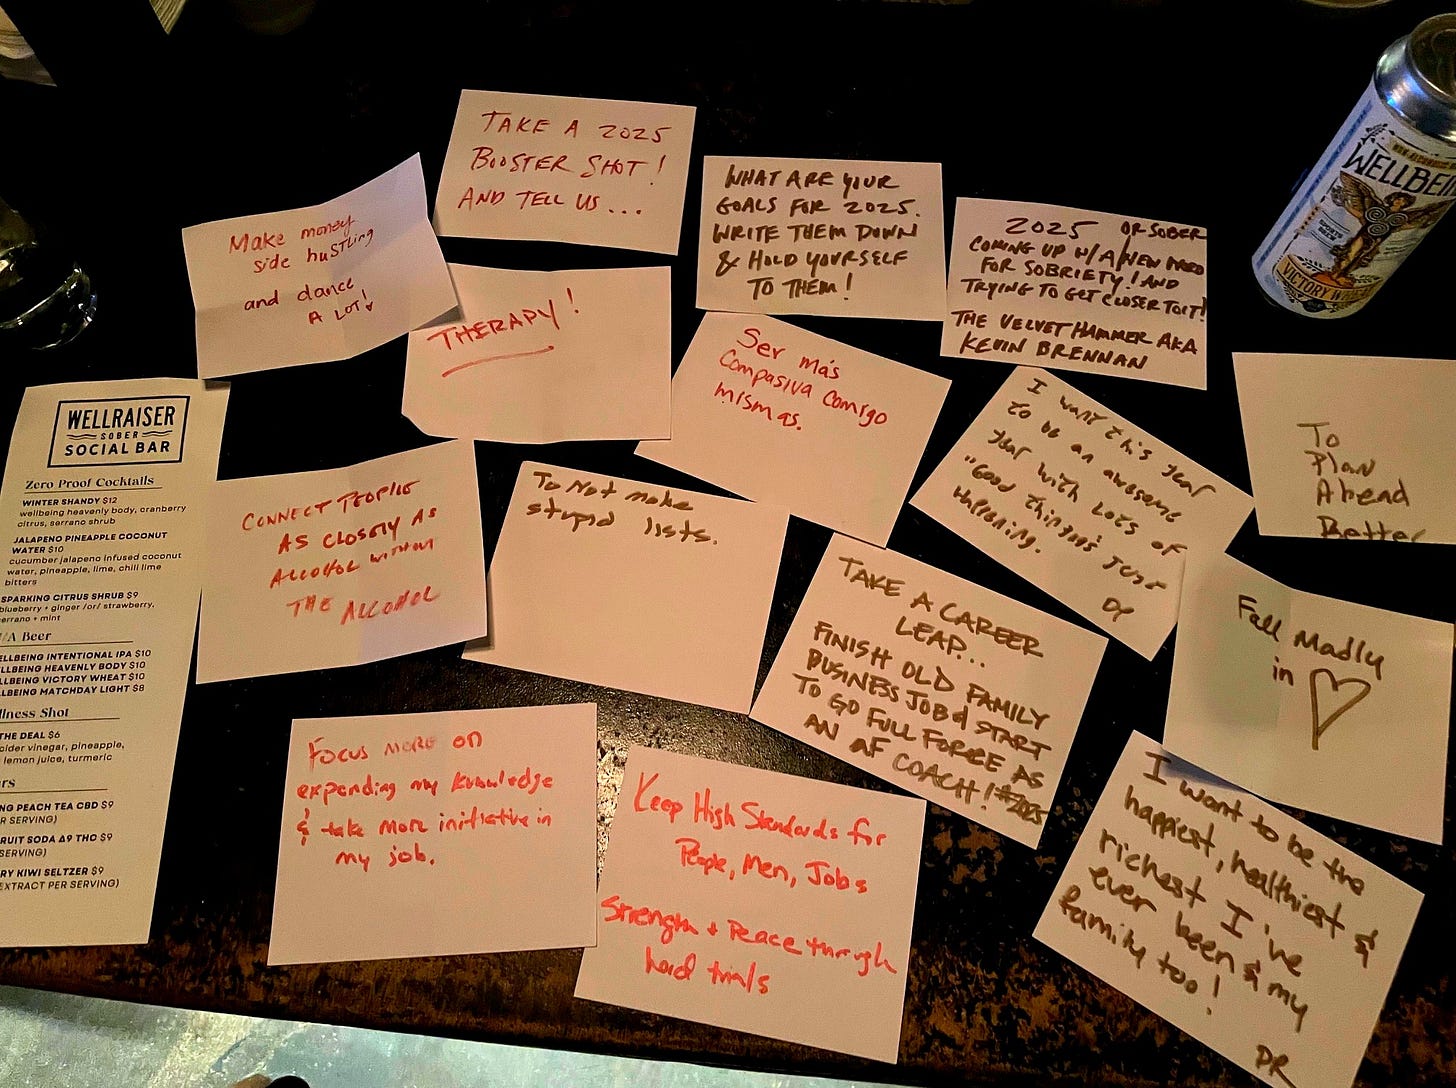 TAKE A 2025
BOOSTER SHOT!
AND TELL US...
WHAT ARE YOUR
GOALS FOR 2025.
WRITE THEM DOWN
& HOLD YOURSELF
TO THEM!
2025 OR SOBER
COMING UP W/A NEW WORD
FOR SOBRIETY! AND
TRYING TO GET CLOSER TO IT!
THE VELVET HAMMER AKA
KEVIN BRENNAN
Make money
side huSTling
and dance
A LOT!
THERAPY!
Ser más
Compasiva Comigo
mismas.
I want this year
to be an awesome
year with LOTS of
"Good things" just
Happening.
DP
To
Plan
Ahead
Better
CONNECT PEOPLE
AS CLOSELY AS
ALCOHOL WITHOUT
THE ALCOHOL
To Not make
stupid lists.
TAKE A CAREER
LEAP...
FINISH OLD FAMILY
BUSINESS JOB & START
TO GO FULL FORCE AS
AN AF COACH! #2025
Fall Madly
in ♡
Focus more on
expanding my knowledge
& take more initiative in
my job.
Keep High Standards for
People, Men, Jobs
Strength + Peace through
hard trials
I want to be the
happiest, healthiest &
richest I've
ever been & my
family too!
DR
WELLRAISER
SOBER
SOCIAL BAR
Zero Proof Cocktails
WINTER SHANDY $12
wellbeing heavenly body, cranberry
citrus, serrano shrub
JALAPENO PINEAPPLE COCONUT
WATER $10
cucumber jalapeno infused coconut
water, pineapple, lime, chili lime
bitters
SPARKING CITRUS SHRUB $9
blueberry + ginger /or/ strawberry,
serrano + mint
/A Beer
ELLBEING INTENTIONAL IPA $10
LLBEING HEAVENLY BODY $10
LLBEING VICTORY WHEAT $10
LLBEING MATCHDAY LIGHT $8
llness Shot
THE DEAL $6
cider vinegar, pineapple,
lemon juice, turmeric
ers
NG PEACH TEA CBD $9
R SERVING)
RUIT SODA Δ9 THC $9
SERVING)
RY KIWI SELTZER $9
EXTRACT PER SERVING)
WELLBE
SPORTS
BREW
VICTORY WHEAT